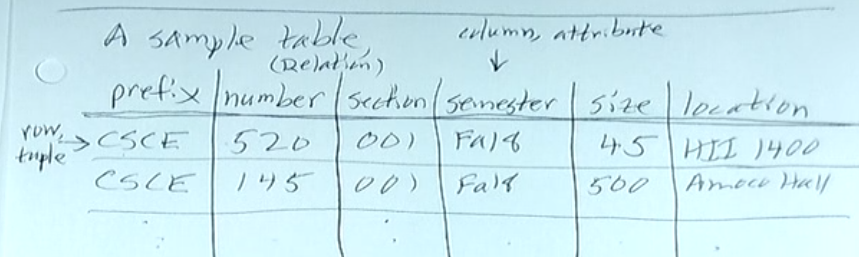 A sample table, column, attribute
(Relation) ↓
prefix number section semester size location
row, tuple → CSCE 520 001 Fal8 45 HII 1400
CSCE 145 001 Fal8 500 Amoco Hall